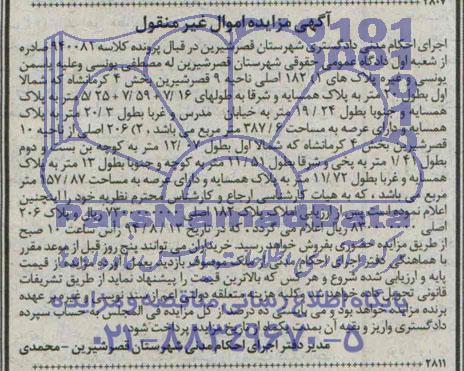 ۲۸۰۷
آگهی مزایده اموال غیر منقول
اجرای احکام مدنی دادگستری شهرستان قصرشیرین در قبال پرونده کلاسه ۹۴۰۰۸۲ صادره
از شعبه اول دادگاه عمومی حقوقی شهرستان قصرشیرین له مصطفی یونسی وعلیه یاسمن
یونسی و غیره پلاک های ۱۸۲ اصلی ناحیه ۹ قصرشیرین بخش ۴ کرمانشاه که شمالا
اول بطول متر به پلاک همسایه و شرقا به طولهای ۷/۱۶ + ۷/۵۹ + ۵/۲۵ متر به پلاک
همسایه و جنوبا بطول ۱۹/۲۴ متر به خیابان مدرس و غربا بطول ۲۰/۳ متر به پلاک
همسایه و دارای عرصه به مساحت ۳۸۷/۶ متر مربع می باشد . ۲) ۲۰۶ اصلی از ناحیه ۱۰
قصرشیرین بخش ۴ کرمانشاه که شمالا اول بطول ۱۲/۰۷ متر به کوچه بن بست و دوم
بطول ۱/۴ متر به پخی و شرقا بطول ۱۱/۵۱ متر به کوچه و جنوبا بطول ۱۳ متر به پلاک
همسایه و غربا بطول ۱۱/۷۲ متر به پلاک همسایه و دارای عرصه به مساحت ۱۵۷/۸۷ متر
مربع می باشد ، که به هیات کارشناسی ارجاع و کارشناس محترم نظریه خود را اینچنین
اعلام نموده است پس از ارزیابی املاک پلاک ۱۸۲ اصلی ریال و پلاک ۲۰۶
اصلی ریال اعلام می گردد که در تاریخ ۹۴/۸/۱۷ راس ساعت ۱۰ صبح
از طریق مزایده حضوری بفروش خواهد رسید. خریداران می توانند پنج روز قبل از موعد مقرر
با هماهنگی دفتر اجرای احکام مدنی از ملک موصوف بازدید بعمل آورده مزایده از قیمت
پایه و ارزیابی شده شروع و هر کس که بالاترین قیمت را پیشنهاد نماید از طریق تشریفات
قانونی تحویل داده خواهد شد متعلقه دولتی و غیر بر عهده
برنده مزایده خواهد بود و می بایستی ده درصد از کل مزایده فی المجلس به حساب سپرده
دادگستری واریز و بقیه آن بمدت یکماه از تاریخ مزایده پرداخت شود.
مدیر دفتر اجرای احکام مدنی شهرستان قصرشیرین - محمدی
۲۸۱۱
ParsNamadData
پایگاه اطلاع رسانی مناقصه و مزایده
۰۲۱-۸۸۳۴۹۶۷۰-۵